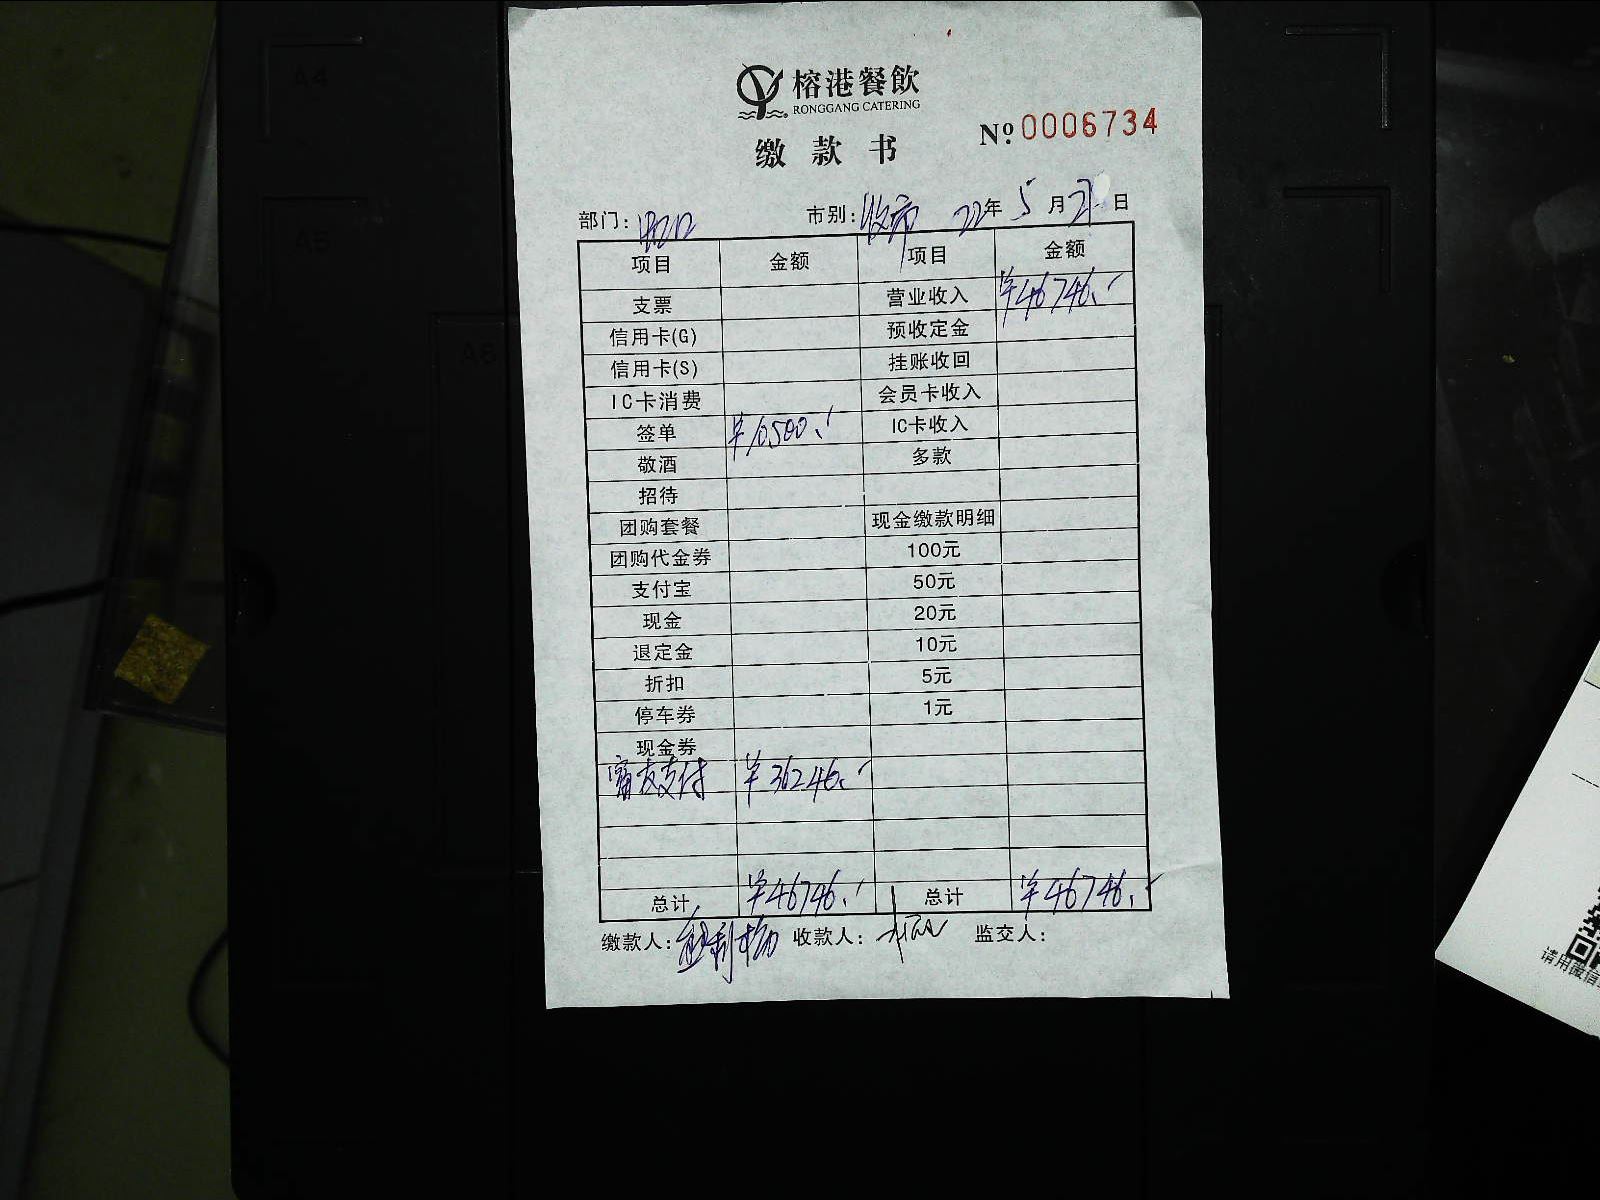 榕港餐飲
RONGGANG CATERING
缴款书
№ 0006734
部门: 市别:收市 22年5月2日
项目 金额 项目 金额
支票 营业收入 ¥46746.-
信用卡(G) 预收定金
信用卡(S) 挂账收回
IC卡消费 会员卡收入
签单 ¥10500.- IC卡收入
敬酒 多款
招待
团购套餐 现金缴款明细
团购代金券 100元
支付宝 50元
现金 20元
退定金 10元
折扣 5元
停车券 1元
现金券
富友支付 ¥36246.-
总计 ¥46746.- 总计 ¥46746.-
缴款人: 收款人: 监交人:
A4
A5
A6
请用微信